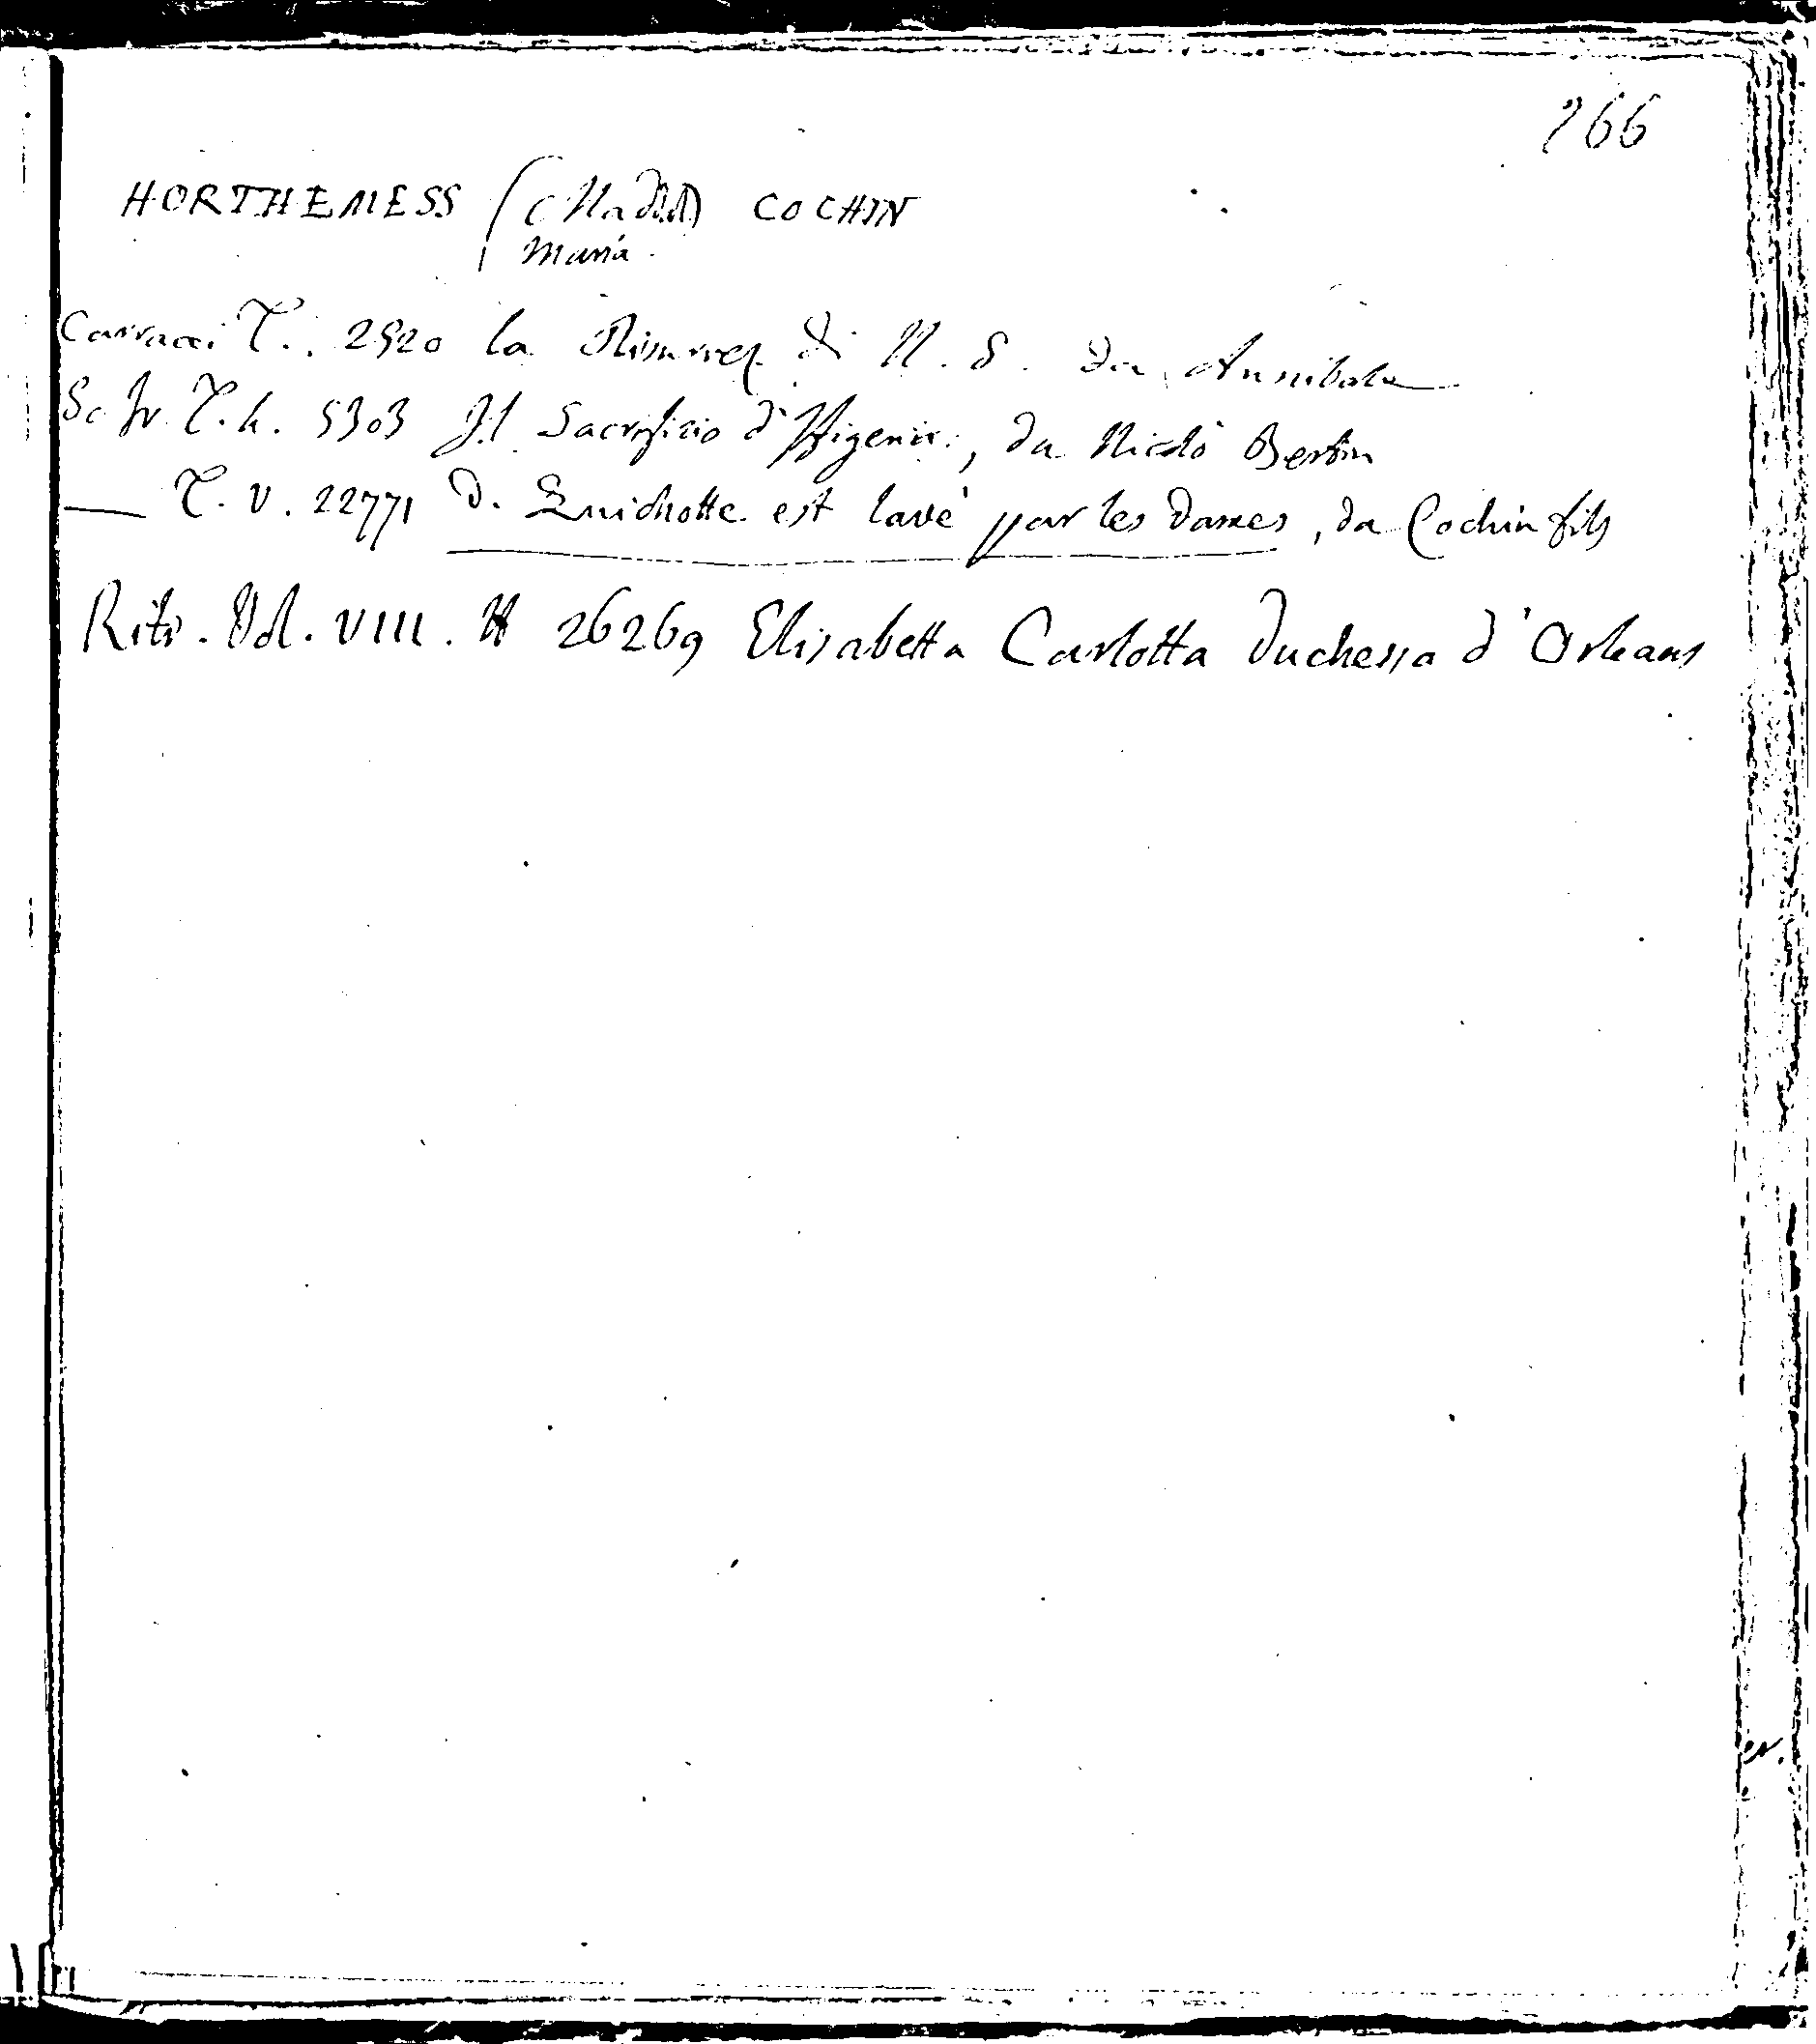 266
HORTHEMESS (Madd) COCHIN
Maria
Carracci T. . 2520 la Risurrez. di N. S. da Annibale
Sc. Fr. T. h. 5303 Il Sacrifizio d'Ifigenia, da Nicolò Bertin
— T. V. 22771 D. Quichotte est lavé par les Dames, da Cochin fils
Ritr. Vol. VIII. N 26269 Elisabetta Carlotta Duchessa d'Orleans